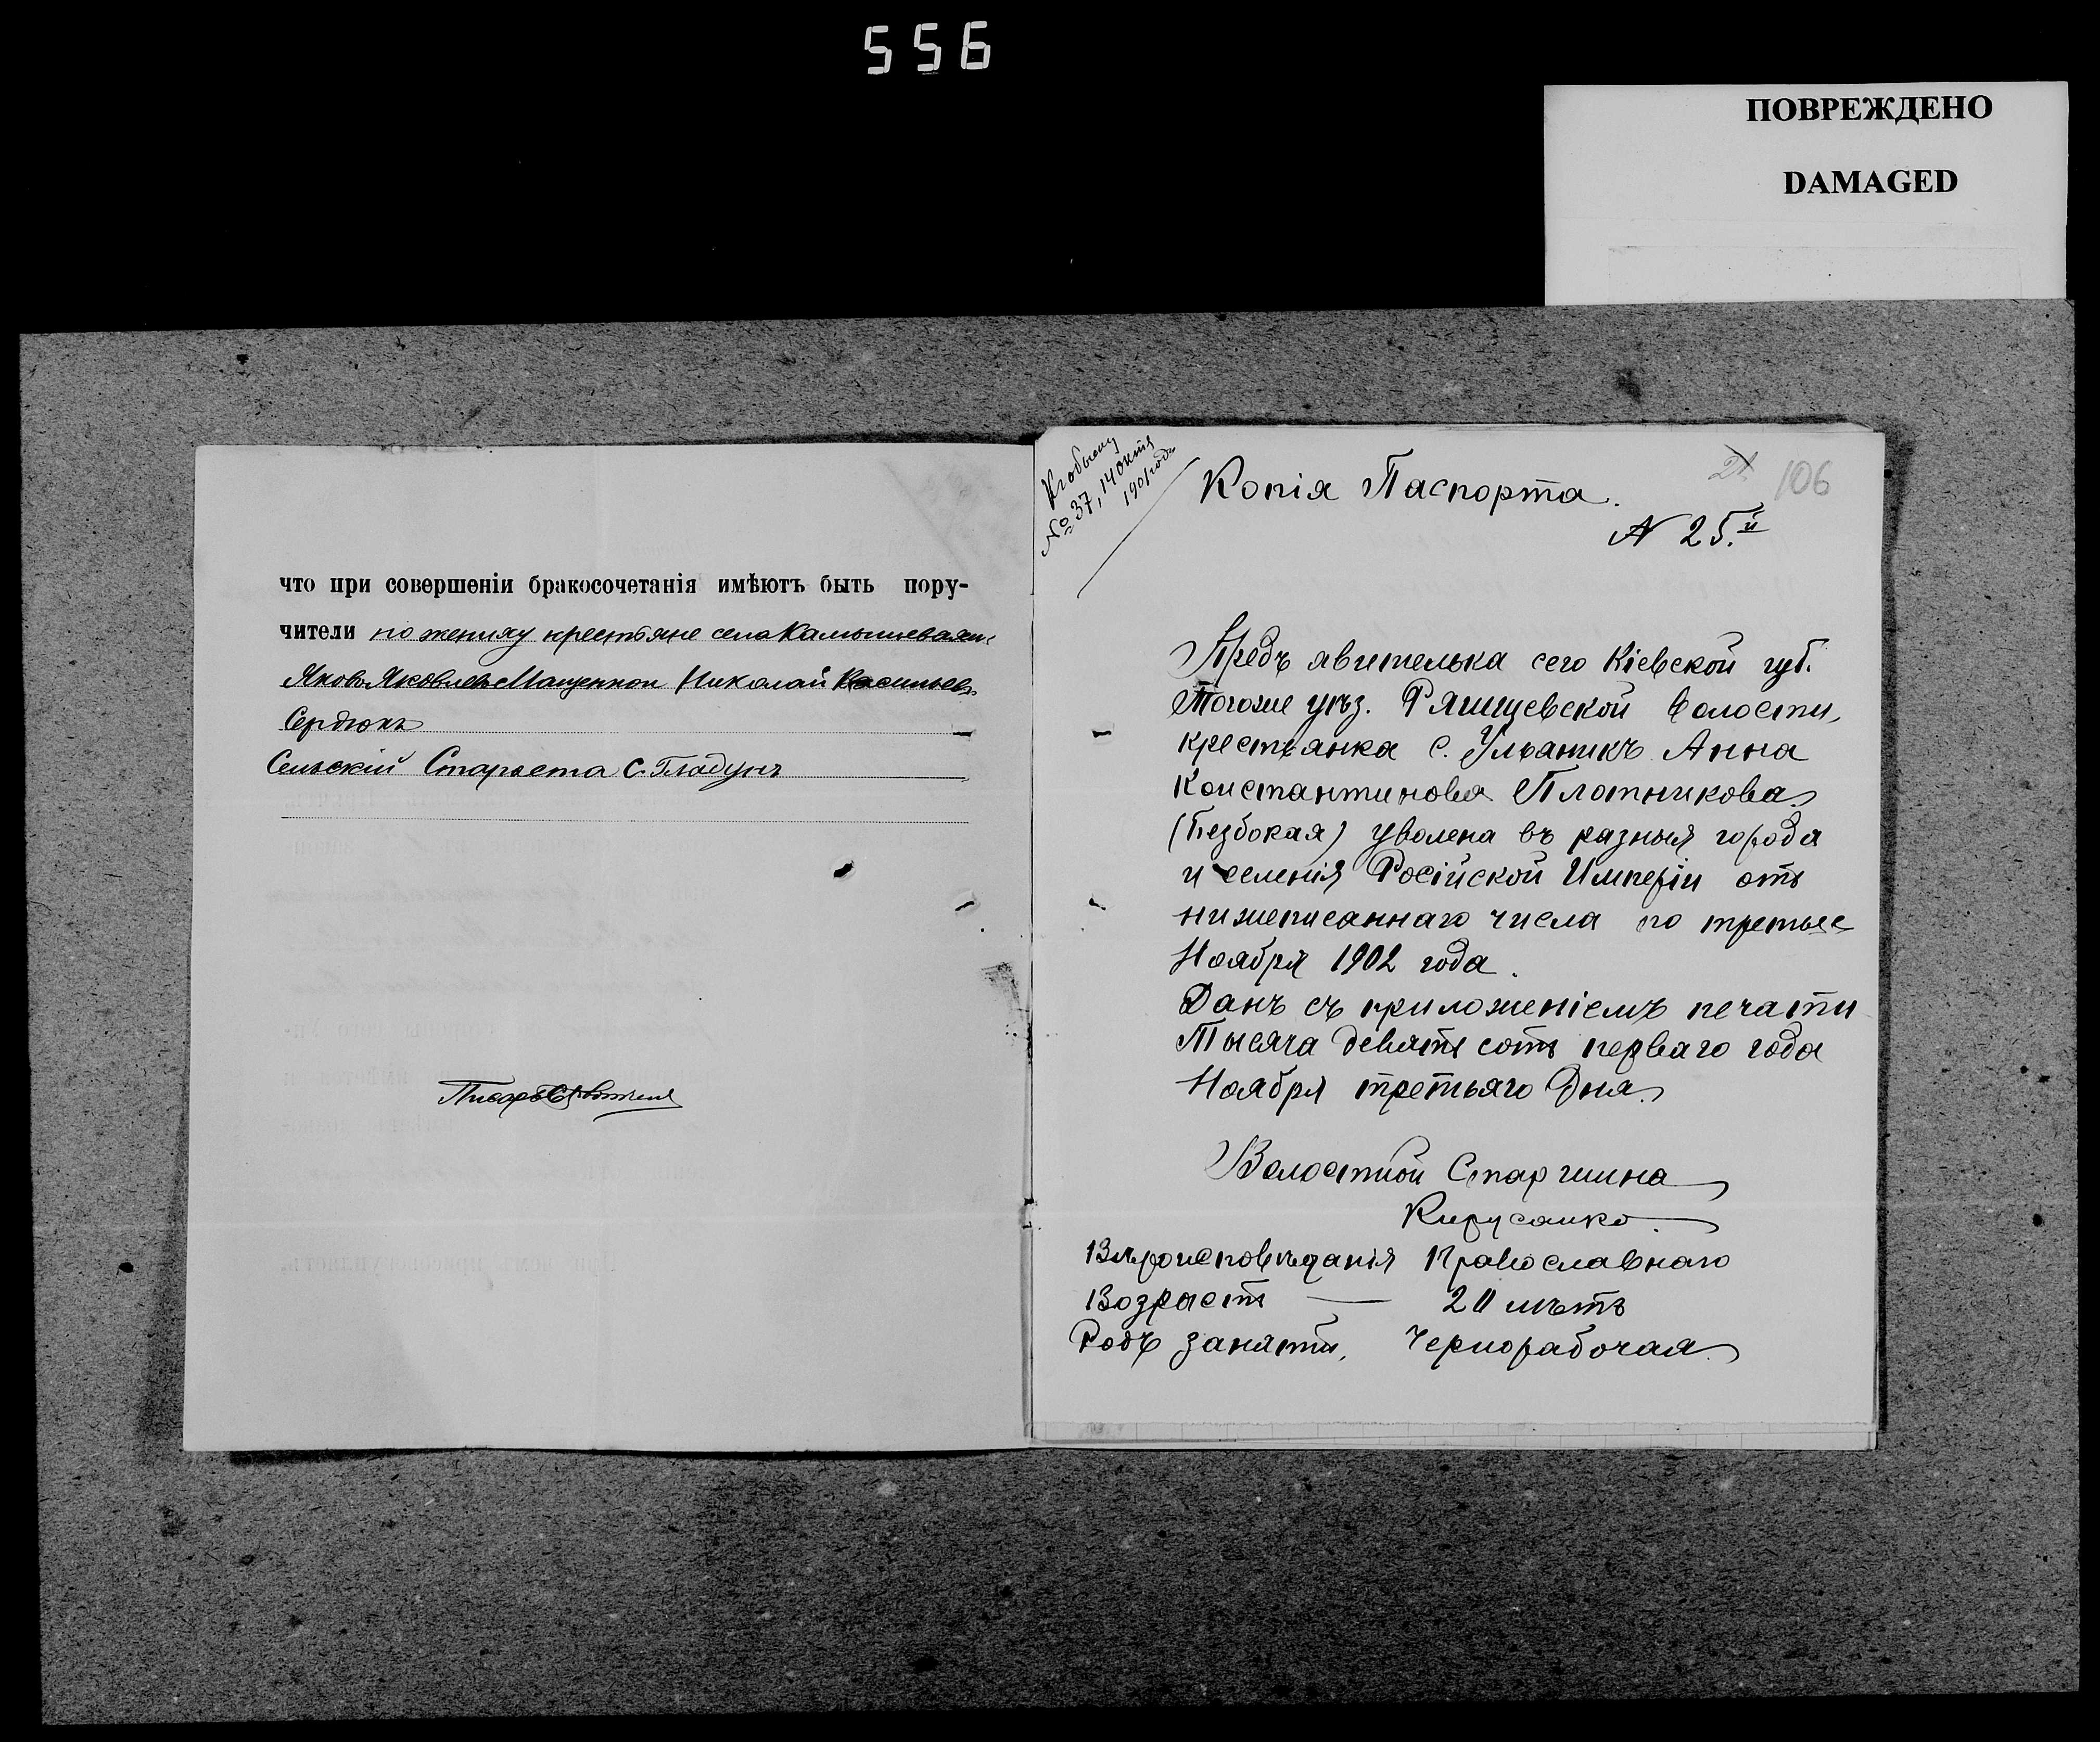 556
ПОВРЕЖДЕНО
DAMAGED
что при совершеніи бракосочетанія имѣютъ быть пору-
чители по жениху крестьяне села Камышеваxи:
Яковъ Яковлевъ Мащенкои Николай Васильев.
Сердюкъ
Сельскій Староста С. Гладунъ
Писарь
К обыску
№ 37, 14 октя
1901 года
21
106
Копія Паспорта.
N 25.й
Предъявителька сего Кіевской губ.
Тогоже уѣз. Ряшщевской Волости,
крестьянка с. Ульяникъ Анна
Константинова Плотникова
(Безбокая) уволена въ разныя города
и селенія Російской Имперіи отъ
нижеписаннаго числа по третье
Ноября 1902 года.
Данъ съ приложеніемъ печати
Тысяча девять сотъ перваго года
Ноября третьяго Дня.
Волостной Старшина
Вѣроисповѣданія Православнаго
Возрастъ — 20 лѣтъ
Родъ заняти, Чернорабочая